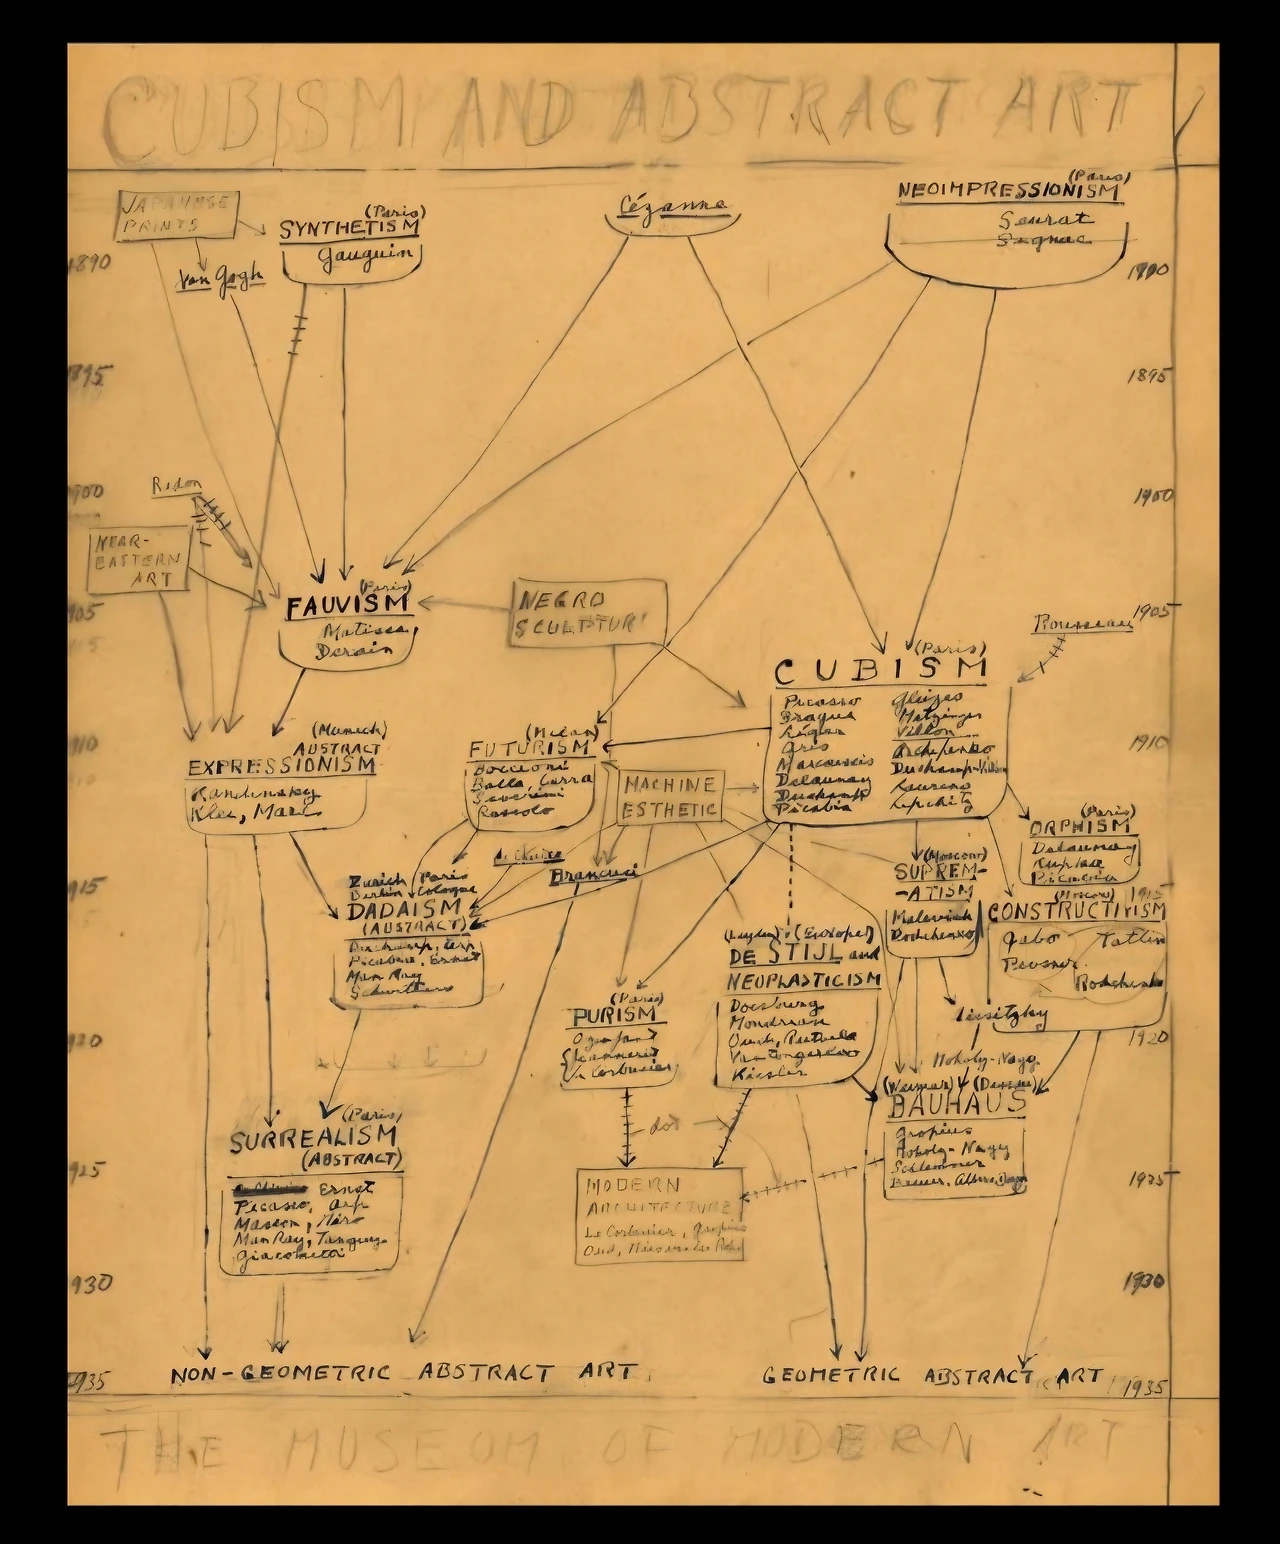 CUBISM AND ABSTRACT ART
JAPANESE
PRINTS
(Paris)
SYNTHETISM
Gauguin
Van Gogh
Cézanne
(Paris)
NEOIMPRESSIONISM
Seurat
Signac
1890
1890
1895
1895
1900
1900
Redon
NEAR-
EASTERN
ART
1905
1905
(Paris)
FAUVISM
Matisse,
Derain
NEGRO
SCULPTUR
Rousseau
(Paris)
CUBISM
Picasso Gleizes
Braque Metzinger
Léger Villon
Gris Archipenko
Marcoussis Duchamp-Villon
Delaunay Laurens
Duchamp Lipchitz
Picabia
1910
1910
(Munich)
ABSTRACT
EXPRESSIONISM
Kandinsky
Klee, Marc
(Milan)
FUTURISM
Boccioni
Balla Carra
Severini
Russolo
MACHINE
ESTHETIC
(Paris)
ORPHISM
Delaunay
Kupka
Picabia
de Chirico
Brancusi
1915
1915
Zurich Paris
Berlin Cologne
DADAISM
(ABSTRACT)
Duchamp, Arp
Picabia, Ernst
Man Ray
Schwitters
(Moscow)
SUPREM-
-ATISM
Malevich
Rodchenko
(Moscow)
CONSTRUCTIVISM
Gabo Tatlin
Pevsner
Rodchenko
(Leyden)
DE STIJL and
NEOPLASTICISM
Doesburg
Mondrian
Oud, Rietveld
Vantongerloo
Kiesler
(Paris)
PURISM
Ozenfant
Jeanneret
Le Corbusier
Lissitzky
1920
1920
Moholy-Nagy
(Weimar) (Dessau)
BAUHAUS
Gropius
Moholy-Nagy
Schlemmer
Breuer, Albers
(Paris)
SURREALISM
(ABSTRACT)
Ernst
Picasso, Arp
Masson, Miro
Man Ray, Tanguy
Giacometti
dot
1925
1925
MODERN
ARCHITECTURE
Le Corbusier, Gropius
Oud, Mies van der Rohe
1930
1930
NON-GEOMETRIC ABSTRACT ART
GEOMETRIC ABSTRACT ART
1935
1935
THE MUSEUM OF MODERN ART